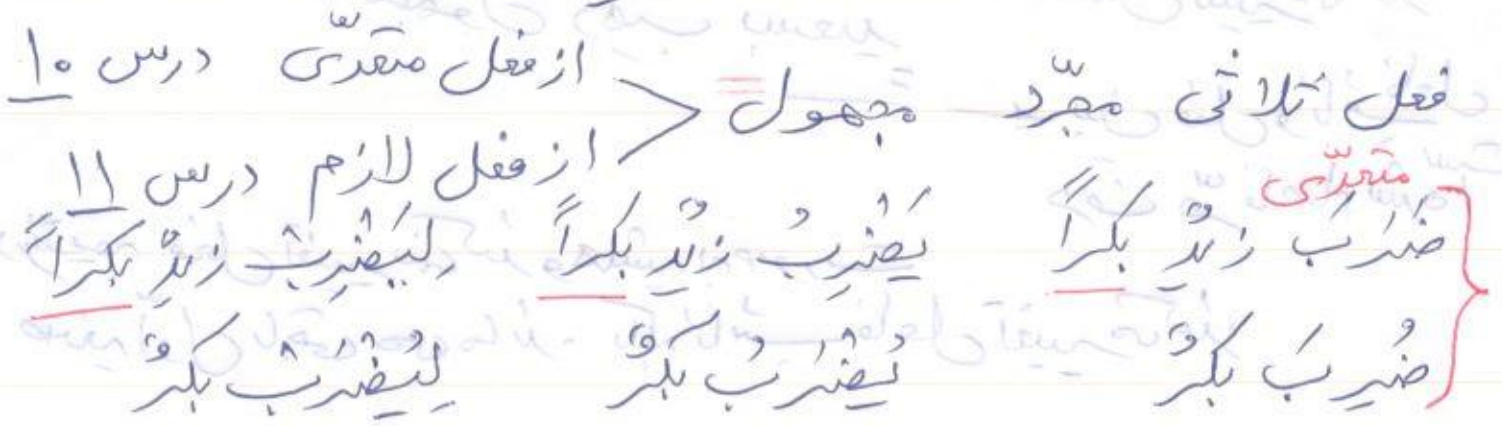 فعل ثلاثی مجرّد مجهول < از فعل متعدّی درس ۱۰
از فعل لازم درس ۱۱
متعدّی
ضَرَبَ زیدٌ بکراً یَضْرِبُ زیدٌ بکراً لِیَضْرِبْ زیدٌ بکراً
ضُرِبَ بکرٌ یُضْرَبُ بکرٌ لِیُضْرَبْ بکرٌ